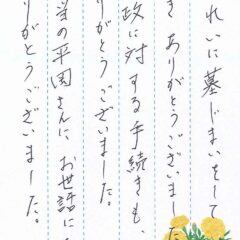 れいに墓じまいをして
き ありがとうございました
政に対する手続きも、
りがとうございました。
当の平国さんに お世話に
りがとうございました。